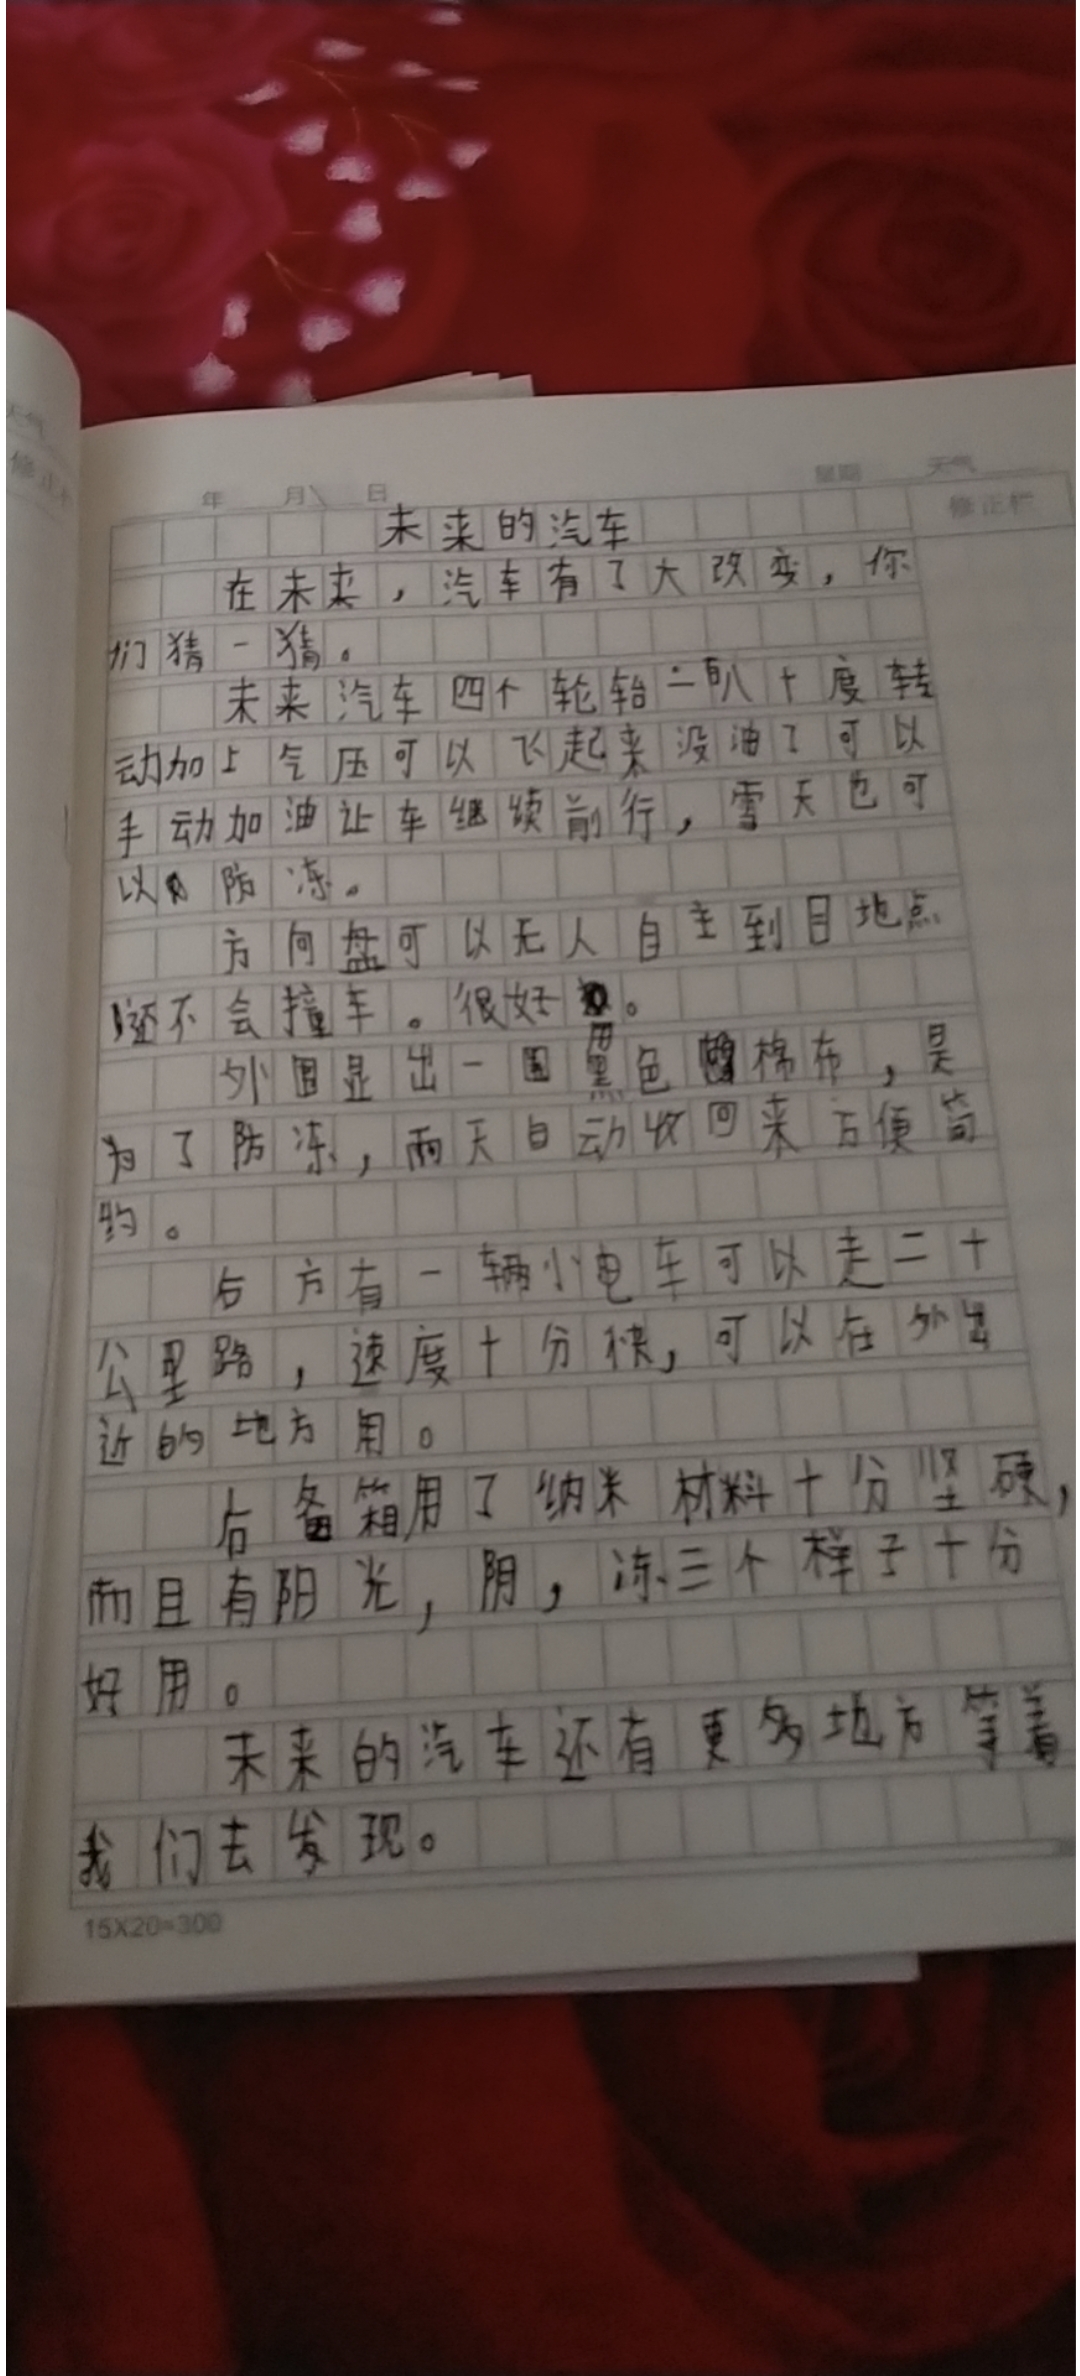 天气
修正栏
年 月 日 星期 天气
修正栏
未来的汽车
在未来，汽车有了大改变，你
们猜一猜。
未来汽车四个轮胎二百八十度转
动加上气压可以飞起来没油了可以
手动加油让车继续前行，雪天也可
以防冻。
方向盘可以无人自主到目地点
还不会撞车。很好。
外围显出一圈黑色棉布，是
为了防冻，雨天自动收回来方便简
约。
后方有一辆小电车可以走二十
公里路，速度十分快，可以在外出
近的地方用。
后备箱用了纳米材料十分坚硬，
而且有阳光，阴，冻三个样子十分
好用。
未来的汽车还有更多地方等着
我们去发现。
15X20=300